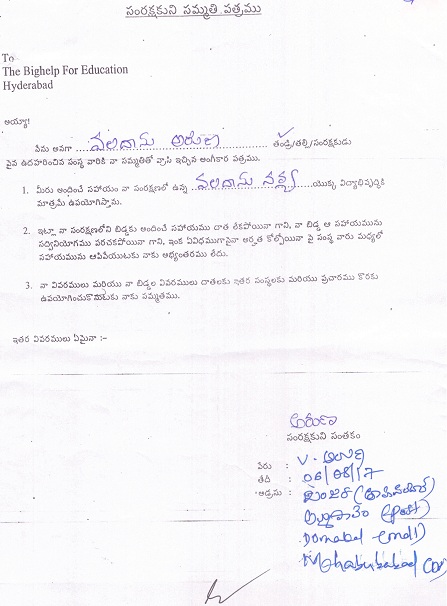 సంరక్షకుని సమ్మతి పత్రము
To
The Bighelp For Education
Hyderabad
అయ్యా!
నేను అనగా వలదాసు అరుణ తండ్రి/తల్లి/సంరక్షకుడు
పైన ఉదహరించిన సంస్థ వారికి నా సమ్మతితో వ్రాసి ఇచ్చిన అంగీకార పత్రము.
1. మీరు అందించే సహాయం నా సంరక్షణలో ఉన్న వలదాసు నవ్య యొక్క విద్యాభివృద్ధికి
మాత్రమే ఉపయోగిస్తాను.
2. ఇట్లా నా సంరక్షణలోని బిడ్డకు అందించే సహాయము దాత లేకపోయినా గాని, నా బిడ్డ ఆ సహాయమును
సద్వినియోగము పరచకపోయినా గాని, ఇంక ఏవిధముగానైనా అర్హత కోల్పోయినా పై సంస్థ వారు మధ్యలో
సహాయమును ఆపివేయుటకు నాకు అభ్యంతరము లేదు.
3. నా వివరములు మరియు నా బిడ్డల వివరములు దాతలకు ఇతర సంస్థలకు మరియు ప్రచారము కొరకు
ఉపయోగించుకొనుటకు నాకు సమ్మతము.
ఇతర వివరములు ఏమైనా :-
అరుణ
సంరక్షకుని సంతకం
పేరు : V. అరుణ
తేది : 06/08/17
అడ్రసు :
(post)
Dornakal (mdl)
Mahabubabad